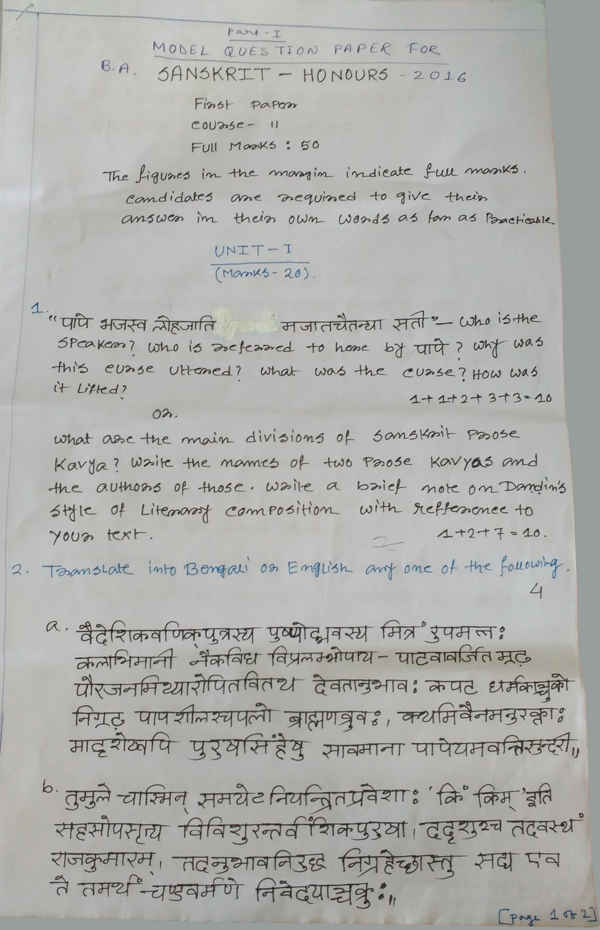 Part-I
MODEL QUESTION PAPER FOR
B.A. SANSKRIT - HONOURS - 2016
First Paper
course- II
Full Marks : 50
The figures in the margin indicate full marks.
candidates are required to give their
answer in their own words as far as Practicable.
UNIT-I
(Marks-20).
1. "पापे भजस्व लोहजाति मजातचैतन्या सती" - who is the
speaker? who is referred to here by पापे? why was
this curse uttered? what was the curse? How was
it lifted? 1+1+2+3+3=10
or.
what are the main divisions of Sanskrit Prose
Kavya? Write the names of two Prose Kavyas and
the authors of those. Write a brief note on Dandin's
style of Literary composition with refference to
your text. 1+2+7=10.
2. Translate into Bengali or English any one of the following.
4
a. वैदेशिकवणिकपुत्रस्य पुष्पोद्भवस्य मित्रं रुपमत्तः
कलाभिमानी नैकविध विप्रलम्भोपाय- पाटवावर्जित मूढ़
पौरजनमिथ्यारोपितवितथ देवतानुभावः कपट धर्मकञ्चुको
निगूढ़ पापशीलश्चपलो ब्राह्मणब्रुवः, कथमिवैनमनुरक्ता
मादृशेष्वपि पुरुषसिंहेषु सावमाना पापेयमवन्तिसुन्दरी॥
b. तुमुले चास्मिन् समयेऽनियन्त्रितप्रवेशाः 'किं किम्' इति
सहसोपसृत्य विविशुरन्तर्वंशिकपुरुषा, ददृशुश्च तदवस्थं
राजकुमारम्, तदनुभावनिरुद्ध निग्रहेच्छास्तु सद्य एव
ते तमर्थं चण्डवर्मणे निवेदयाञ्चक्रुः॥
[page 1 of 2]